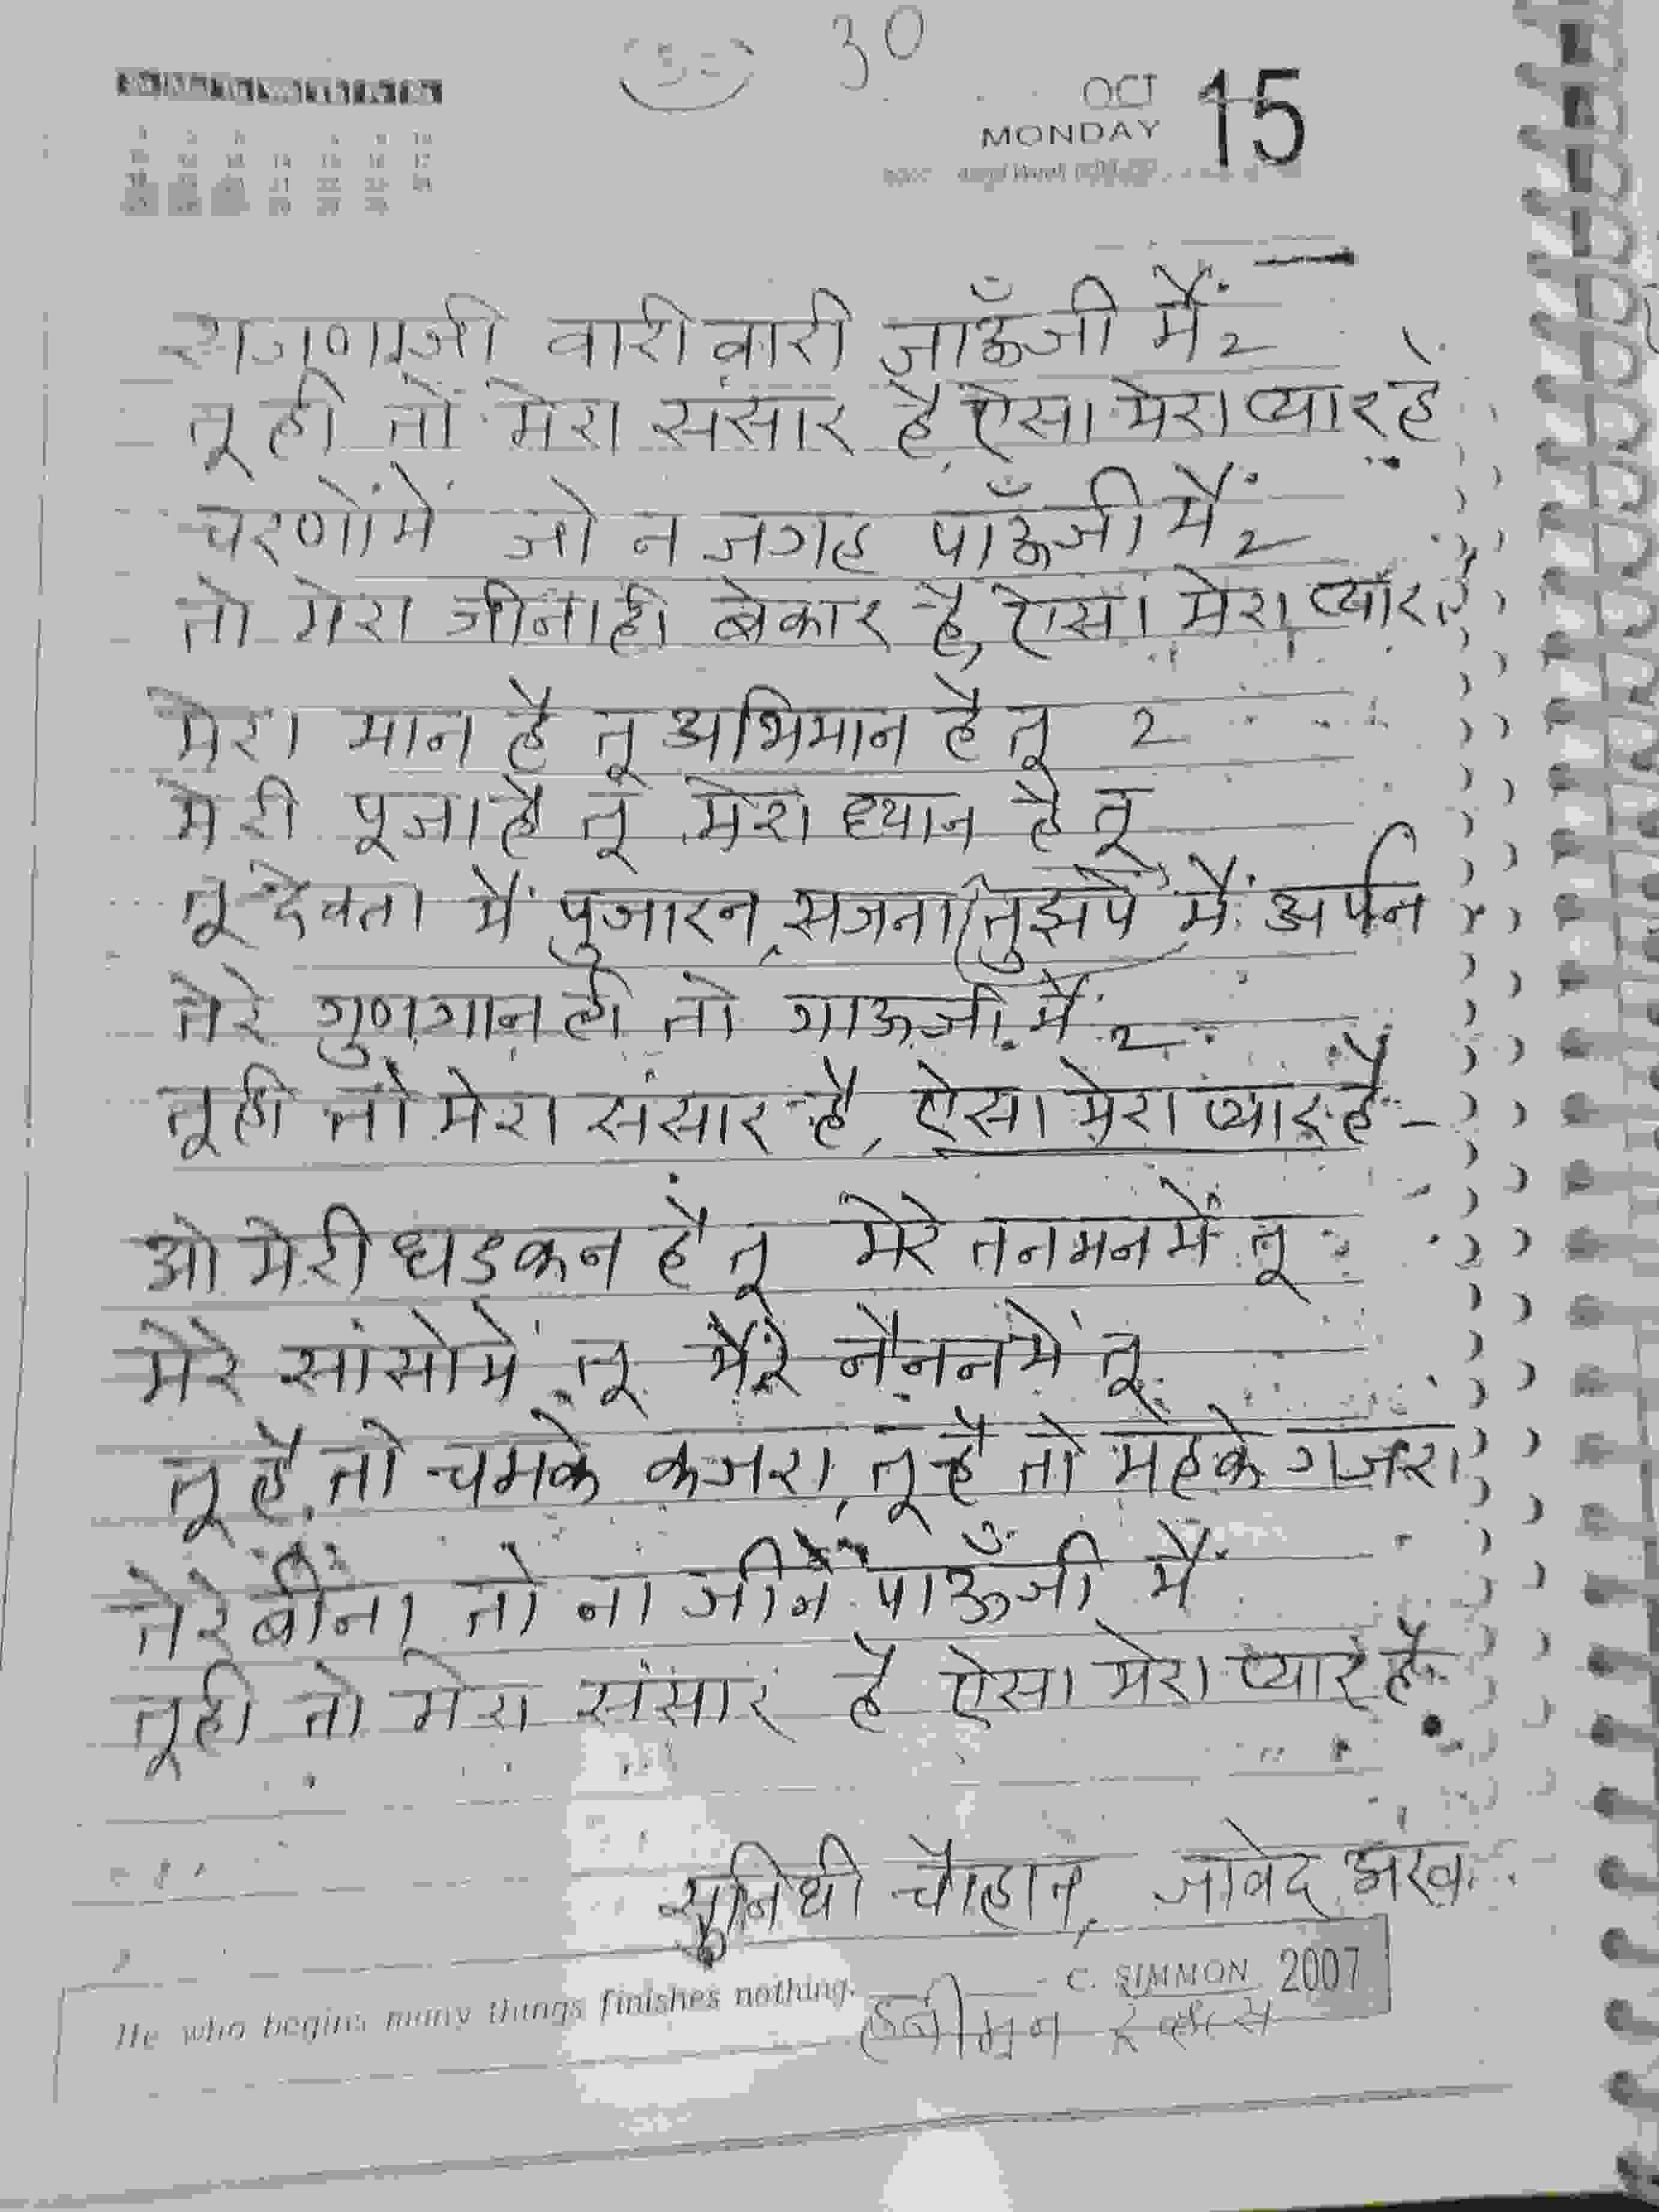 30
OCT
MONDAY 15
सजणाजी वारी वारी जाऊँजी मैं 2
तू ही तो मेरा संसार है, ऐसा मेरा प्यार है
चरणोंमें जो न जगह पाऊँजी मैं 2
तो मेरा जीनाही बेकार है, ऐसा मेरा प्यार है
मेरा मान है तू अभिमान है तू 2
मेरी पूजा है तू मेरा ध्यान है तू
तू देवता मैं पुजारन, सजना तुझपे मैं अर्पन
तेरे गुणगान ही तो गाऊजी मैं 2
तूही तो मेरा संसार है, ऐसा मेरा प्यार है -
ओ मेरी धडकन है तू मेरे तनमनमें तू
मेरे सांसोमें तू मेरे नैननमें तू
तू है तो चमके कजरा, तू है तो महके गजरा
तेरे बीना तो ना जीने पाऊँजी मैं
तूही तो मेरा संसार है ऐसा मेरा प्यार है
सुनिधी चौहान, जावेद अख
C. SIMMON 2007
He who begins many things finishes nothing.